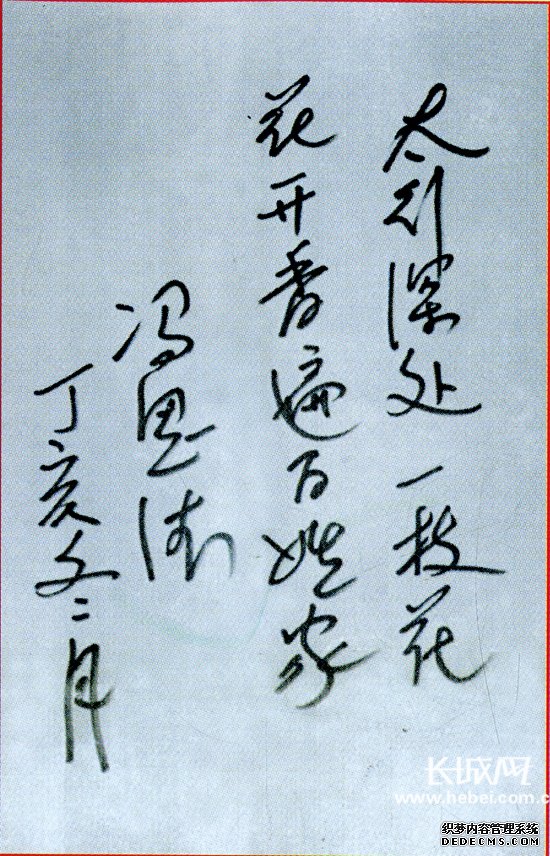 太行深处一枝花
花开香遍百姓家
冯思德
丁亥冬二月
长城网
www.hebei.com.c
织梦内容管理系统
DEDECMS.COM